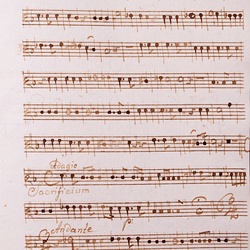 Adagio
Sacrificium
Andante
p